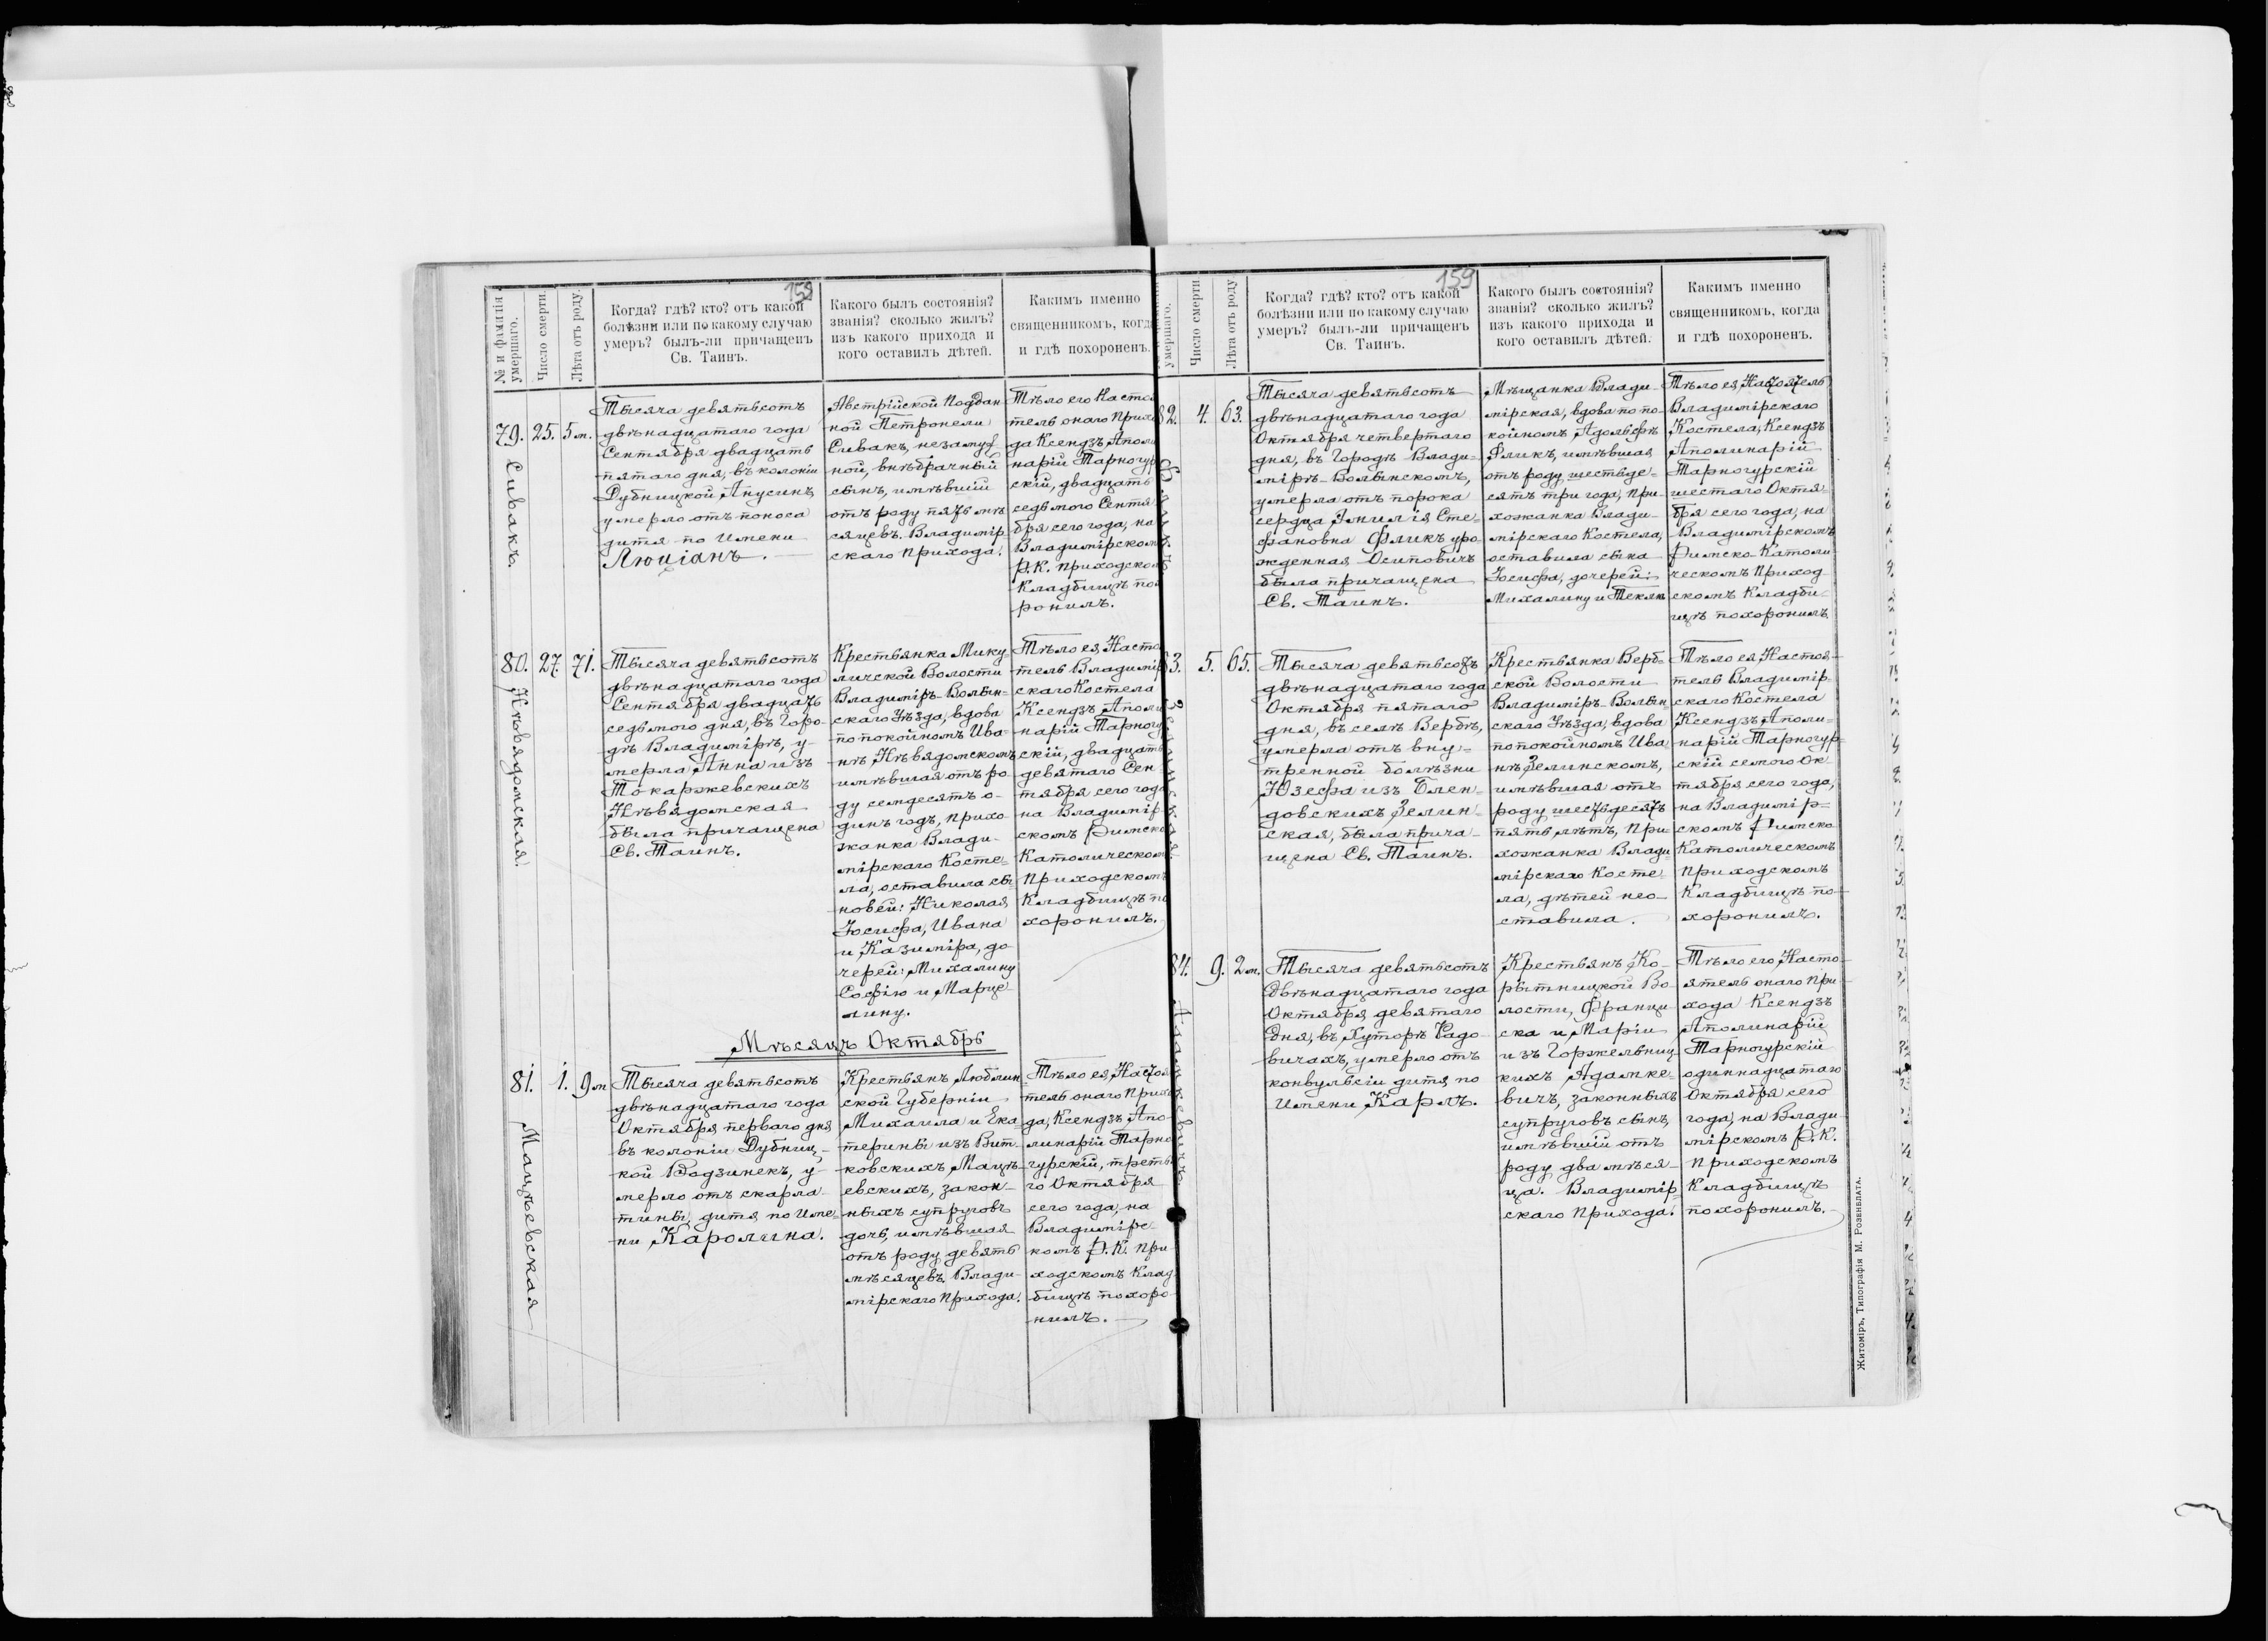 159
№ и фамилія
умершаго.
Число смерти.
Лѣта отъ роду.
Когда? гдѣ? кто? отъ какой
болѣзни или по какому случаю
умеръ? былъ-ли причащенъ
Св. Таинъ.
Какого былъ состоянія?
званія? сколько жилъ?
изъ какого прихода и
кого оставилъ дѣтей.
Какимъ именно
священникомъ, когда
и гдѣ похороненъ.
79. 25. 5 м.
Сивакъ.
Тысяча девятьсотъ
двѣнадцатаго года
Сентября двадцать
пятаго дня, въ колоніи
Дубницкой Анусинъ
умерло отъ поноса
дитя по имени
Люціанъ.
Австрійской Поддан
ной Петронели
Сивакъ, незамуж
ной, внѣбрачный
сынъ, имѣвшій
отъ роду пять мѣ
сяцевъ. Владимір
скаго Прихода.
Тѣло его Насто
тель онаго Прихо
да Ксендзъ Апол
нарій Тарногур
скій, двадцать
седьмого Сентя
бря сего года, на
Владимірском
Р.К. Приходско
Кладбищѣ по
ронилъ.
80. 27. 71.
Нѣвядомская.
Тысяча девятьсотъ
двѣнадцатаго года
Сентября двадцать
седьмого дня, въ Горо-
дѣ Владимірѣ, у-
мерла Анна изъ
Токаржевскихъ
Нѣвядомская
была причащена
Св. Таинъ.
Крестьянка Мику-
личской Волости
Владиміръ-Волын-
скаго Уѣзда, вдова
по покойномъ Ива-
нѣ Нѣвядомскомъ
имѣвшая отъ ро-
ду семдесятъ о-
динъ годъ, прихо-
жанка Влади-
мірскаго Косте-
ла, оставила сы-
новей: Николая
Іосифа, Ивана
и Казиміра, до-
черей: Михалину
Софію и Марце-
лину.
Тѣло ея, Насто
тель Владимір
скаго Костела
Ксендзъ Аполи
нарій Тарногу
скій, двадцать
девятаго Сен-
тября сего года
на Владимір
скомъ Римско
Католическом
Приходскомъ
Кладбищѣ по
хоронилъ.
Мѣсяцъ Октябрь
81. 1. 9 м
Мацѣевская
Тысяча девятьсотъ
двѣнадцатаго года
Октября перваго дня
въ колоніи Дубниц-
кой Водзинекъ, у-
мерло отъ скарла-
тины, дитя по име-
ни Каролина.
Крестьянъ Люблин-
ской Губерніи
Михаила и Ека-
терины изъ Вит-
ковскихъ Мацѣ-
евскихъ, закон-
ныхъ супруговъ
дочь, имѣвшая
отъ роду девять
мѣсяцевъ. Влади-
мірскаго Прихода.
Тѣло ея, Настоя
тель онаго Прихо
да, Ксендзъ Апо-
линарій Тарно
гурскій, треть
го Октября
сего года, на
Владимірс
комъ Р.К. При
ходскомъ Клад
бищѣ похоро
нилъ.
159
умершаго.
Число смерти
Лѣта отъ роду
Когда? гдѣ? кто? отъ какой
болѣзни или по какому случаю
умеръ? былъ-ли причащенъ
Св. Таинъ.
Какого былъ состоянія?
званія? сколько жилъ?
изъ какого прихода и
кого оставилъ дѣтей.
Какимъ именно
священникомъ, когда
и гдѣ похороненъ.
82. 4. 63.
Фликъ.
Тысяча девятьсотъ
двѣнадцатаго года
Октября четвертаго
дня, въ Городѣ Влади-
мірѣ-Волынскомъ,
умерла отъ порока
сердца Эмилія Сте-
фановна Фликъ уро-
жденная Осиповичъ
была причащена
Св. Таинъ.
Мѣщанка Влади-
мірская, вдова по по-
койномъ Адольфѣ
Фликъ, имѣвшая
отъ роду шестьде-
сятъ три года, при-
хожанка Влади-
мірскаго Костела,
оставила сына
Іосифа, дочерей:
Михалину и Теклю
Тѣло ея, Настоятель
Владимірскаго
Костела, Ксендзъ
Аполинарій
Тарногурскій
шестаго Октя-
бря сего года, на
Владимірскомъ
Римско-Католи
ческомъ Приход
скомъ Кладби-
щѣ похоронилъ.
83. 5. 65.
Зелинская.
Тысяча девятьсотъ
двѣнадцатаго года
Октября пятаго
дня, въ селѣ Вербѣ,
умерла отъ вну-
тренной болѣзни
Юзефа изъ Блен-
довскихъ Зелин-
ская, была прича-
щена Св. Таинъ.
Крестьянка Верб-
ской Волости
Владиміръ-Волын-
скаго Уѣзда, вдова
по покойномъ Ива
нѣ Зелинскомъ,
имѣвшая отъ
роду шестьдесятъ
пять лѣтъ, при-
хожанка Влади-
мірскаго Косте-
ла, дѣтей нео-
ставила.
Тѣло ея, Настоя-
тель Владимір-
скаго Костела
Ксендзъ Аполи-
нарій Тарногур-
скій семого Ок
тября сего года,
на Владимір-
скомъ Римско
Католическомъ
Приходскомъ
Кладбищѣ по-
хоронилъ.
84. 9. 2 м.
Адамкевичъ
Тысяча девятьсотъ
двѣнадцатаго года
Октября девятаго
дня, въ Хуторѣ Радо
вичахъ, умерло отъ
конвульсіи дитя по
имени Карлъ.
Крестьянъ Ко-
рытницкой Во-
лости, Францы
ска и Маріи
изъ Горжельниц
кихъ Адамке-
вичъ, законныхъ
супруговъ сынъ,
имѣвшій отъ
роду два мѣся-
ца. Владимір
скаго Прихода.
Тѣло его, Насто-
ятель онаго При
хода Ксендзъ
Аполинарій
Тарногурскій
одиннадцатаго
Октября сего
года, на Влади-
мірскомъ Р.К.
Приходскомъ
Кладбищѣ
похоронилъ.
Житоміръ, Типографія М. Розенблата.